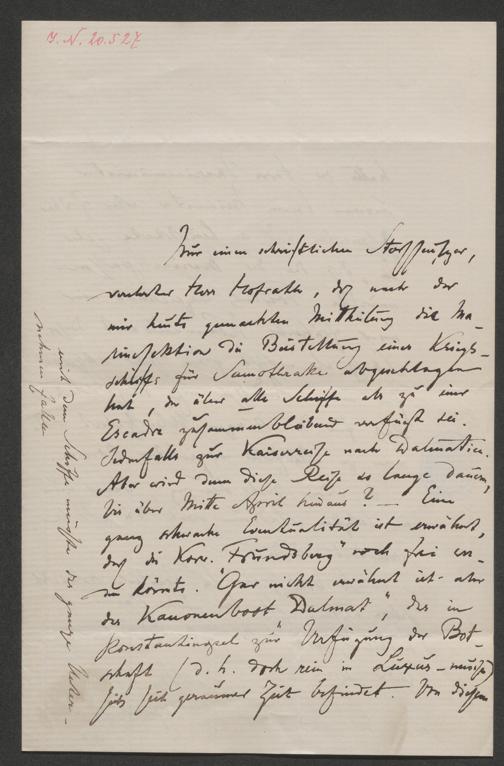 I. N. 20.527
Nur einen schriftlichen Stoßseufzer,
verehrter Herr Hofrath, daß nach der
mir heute gemachten Mittheilung die Ma-
rinesektion die Beistellung eines Kriegs-
schiffs für Samothrake abgeschlagen
hat, da über alle Schiffe als zu einer
Escadre zusammenbleibend verfügt sei.
Jedenfalls zur Kaiserreise nach Dalmatien.
Aber wird denn diese Reise so lange dauern,
bis über Mitte April hinaus? — Eine
ganz schwache Eventualität ist erwähnt,
daß die Korv. "Frundsberg" noch frei wer-
den könnte. Gar nicht erwähnt ist aber
das Kanonenboot "Dalmat", das in
Konstantinopel zur Verfügung der Bot-
schaft (d. h. doch rein in Luxus-
sich seit geraumer Zeit befindet. Von diesem
mit dem Schiffe müßte die ganze Unter-
nehmen fallen